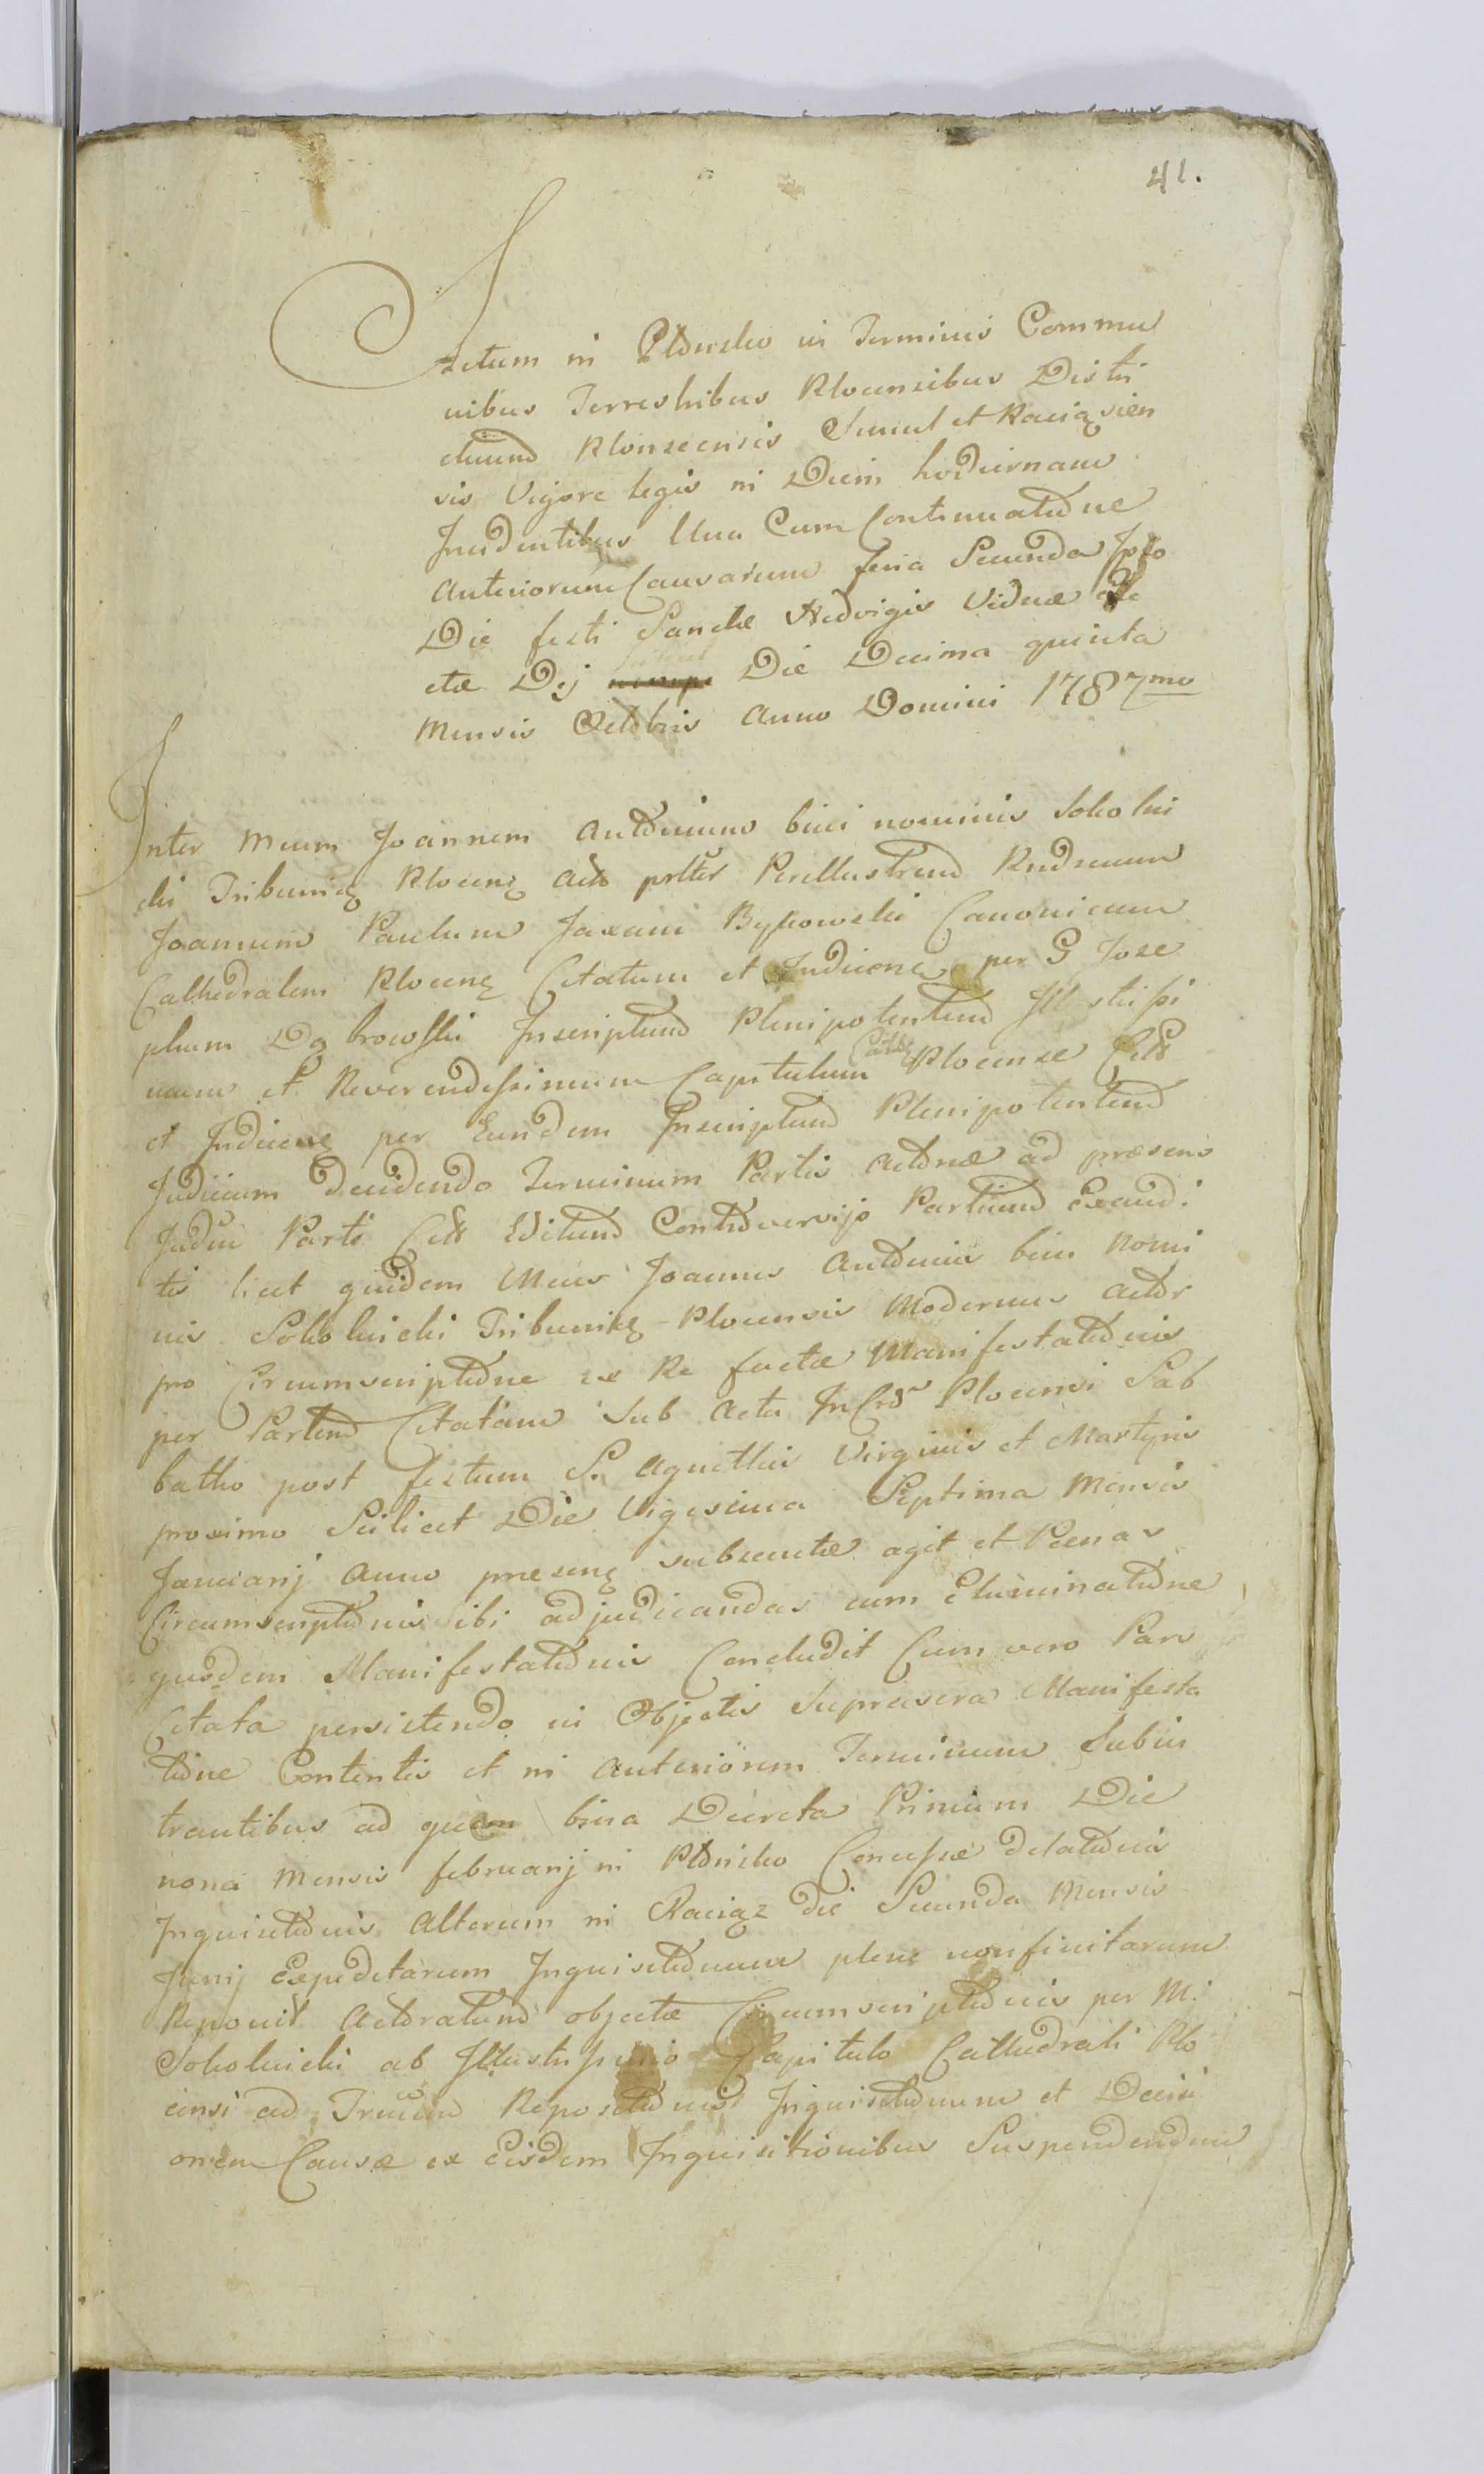 41.
Actum in Płonsko in Terminis Commu
nibus Terrestribus Plocensibus Distri
ctuum Plonscensis Simul et Raciąsien
sis Vigore legis in Diem hodiernam
Incidentibus Una Cum Continuatione
Anteriorum Causarum feria Secunda Ipso
Die festi Sanctæ Hedvigis Viduæ Ele
ctæ Dej Scilicet Die Decima quinta
Mensis Octobris Anno Domini 1787mo
Inter Mcum Joannem Antonium bini nominis Sokolni
cki Tribunię Plocenę Acto Perillustrem Rndmum
Joannem Paulum Jaxam Bykowski Canonicum
Cathedralem Plocenę Citatum et Judicenę per G Jose
phum Dąbrowski Inscriptum Plenipotentem Illustrissi
mum et Reverendissimum Capitulum Cathę Plocense Citt
et Judicenę per Eundem Inscriptum Plenipotentem
Judicium Decidendo Terminum Partis Actoreæ ad præsens
Judiu Parti Citt Editum Controversijs Partium Exaudi
tis licet quidem Mcus Joannes Antonius bini Nomi
nis Sokolnicki Tribunię Plocensis Modernus Actor
pro Circumscriptione ex Re factæ Manifestationis
per Partem Citatam Sub Actu Plocensi Sab
batho post festum S. Agnethis Virginis et Martyris
proximo Scilicet Die Vigesima Septima Mensis
Januarij Anno præsenę subsecutæ agit et Pænas
Circumscriptionis sibi adjudicandas cum Eliminatione
ejusdem Manifestationis Concludit Cum vero Pars
Citata persistendo in Objectis Manifesta
tione Contentis et in Anteriorem Terminum Subin
trantibus ad quem bina Decreta Primum Die
nona Mensis februarij in Płonsko Concessæ Delationis
Inquisitionis Alterum in Raciąz Die Secunda Mensis
Junij Expeditarum Inquisitionum plene non finitarum
Reponit Actoratum objectæ Circumscriptionis per M.
Sokolnicki ab Illustrissimo Capitulo Cathedrali Plo
censi ad Repositionis Inquisitionum et Decisi
onem Causæ ex Eisdem Inquisitionibus Suspendendum